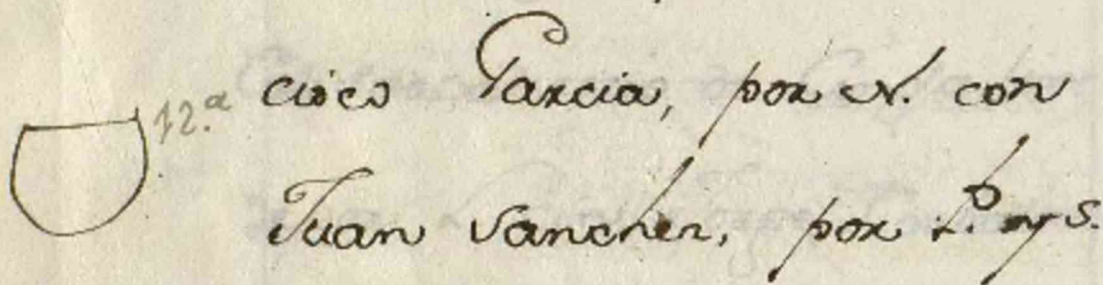 12.ª cisco Garcia, por N. con
Juan Sanchez, por P. y S.